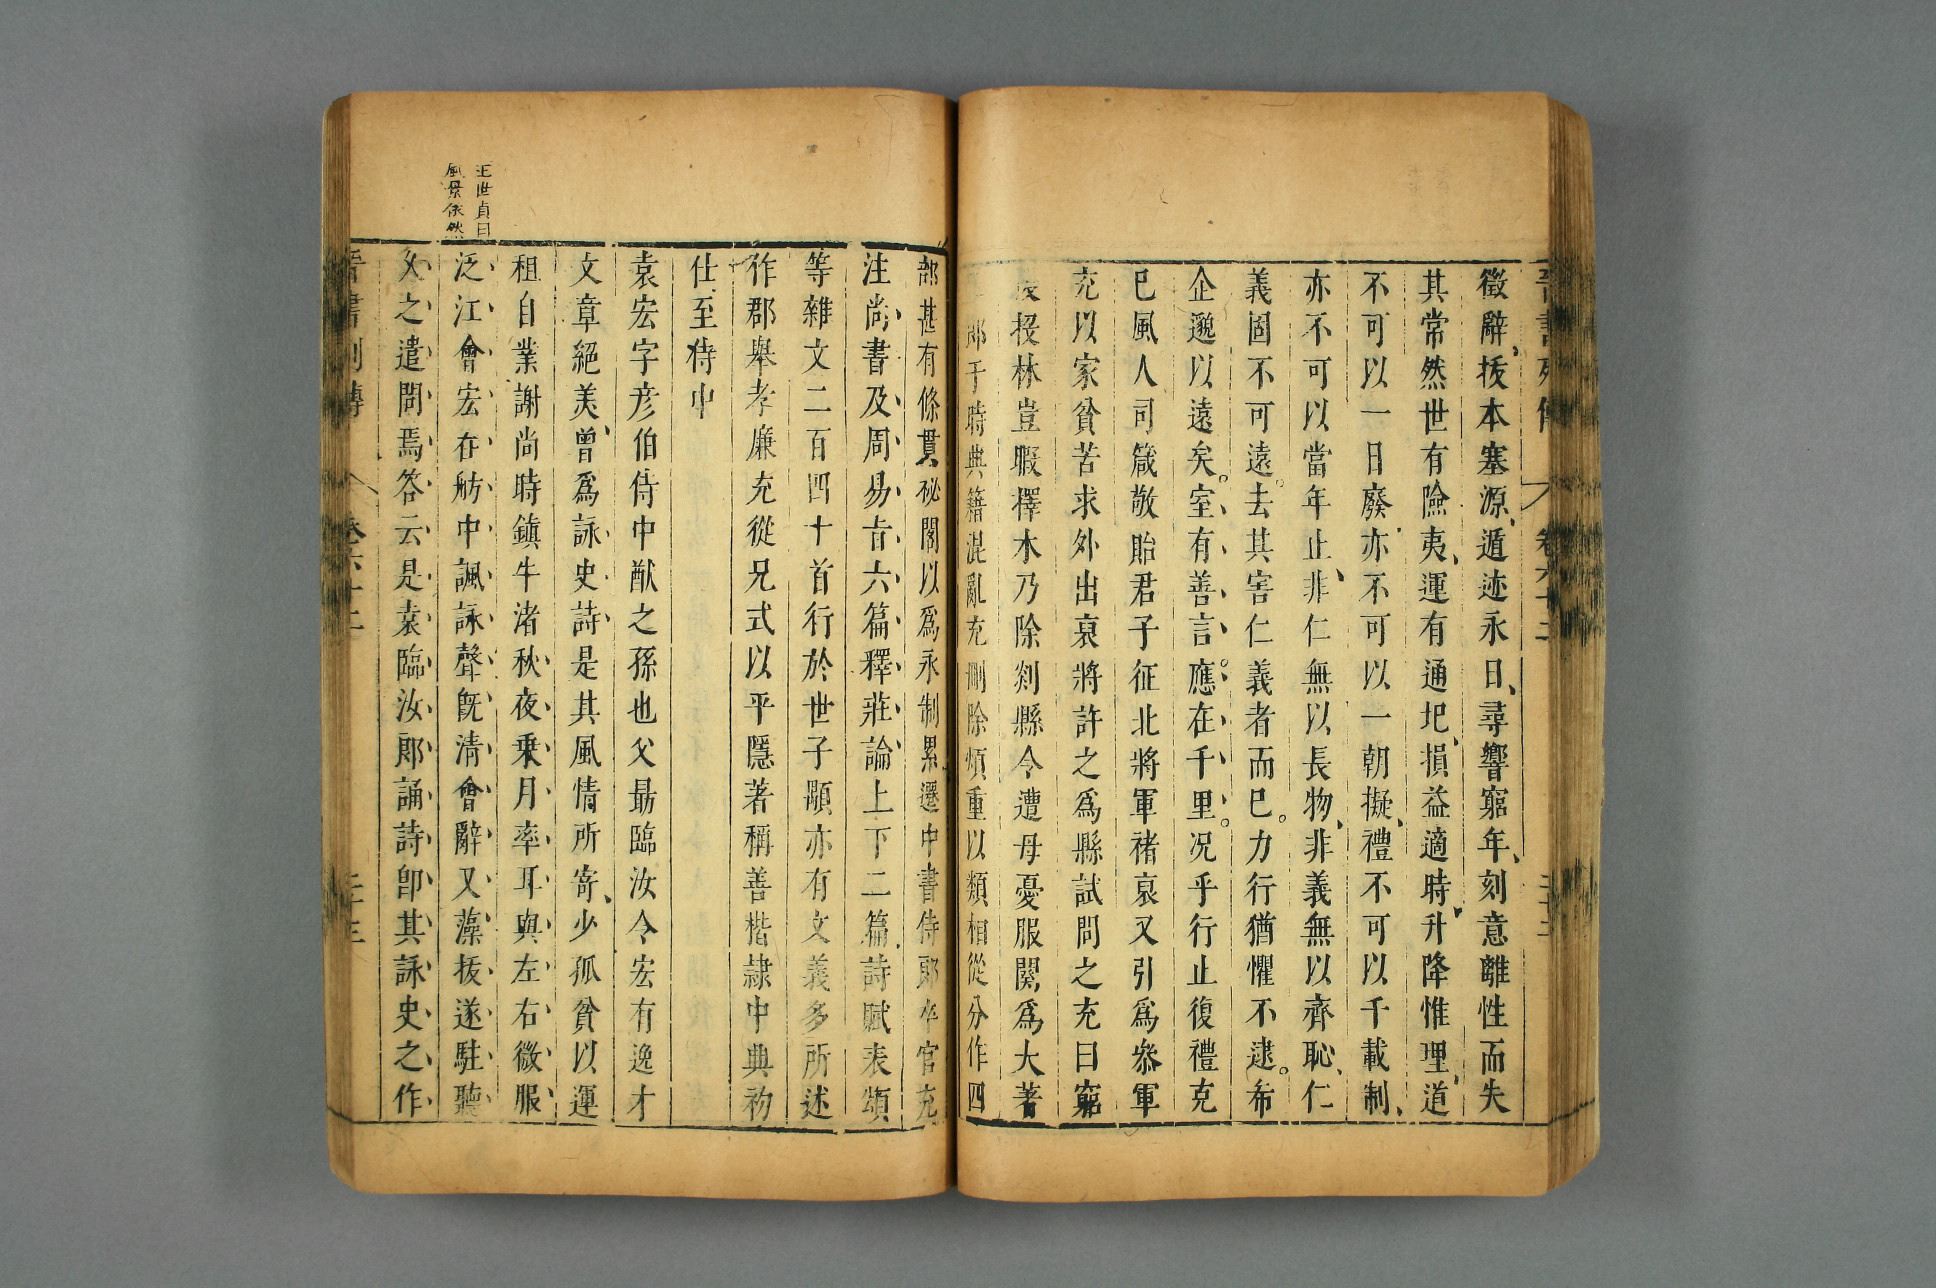 晉書列傳 卷六十二
徵辭、拔本塞源、遁迹永日、尋響窮年、刻意離性而失
其常然世有險夷、運有通圯、損益適時、升降惟理、道
不可以一日廢、亦不可以一朝擬、禮不可以千載制、
亦不可以當年止、非仁無以長物、非義無以齊恥、仁
義固不可遠。去其害仁義者而已。力行猶懼不逮。希
企邈以遠矣。室有善言。應在千里。况乎行止復禮克
已風人司箴敬貽君子征北將軍褚裒又引爲參軍
充以家貧苦求外出裒將許之爲縣試問之充曰窮
投林豈暇擇木乃除剡縣令遭母憂服闋爲大著
郎于時典籍混亂充刪除煩重以類相從分作四
部甚有條貫祕閣以爲永制累遷中書侍郎卒官充
注尚書及周易旨六篇釋莊論上下二篇詩賦表頌
等雜文二百四十首行於世子顒亦有文義多所述
作郡舉孝廉充從兄式以平隱著稱善楷隷中典初
仕至侍中
袁宏字彦伯侍中猷之孫也父勗臨汝令宏有逸才
文章絕美、曾爲詠史詩是其風情所寄、少孤貧以運
租自業謝尚時鎮牛渚秋夜乗月率耳與左右微服
泛江會宏在舫中諷詠聲旣清會辭又藻拔遂駐聽
乆之遣問焉答云是袁臨汝郎誦詩卽其詠史之作
王世貞曰
風景依然
晉書列傳 卷六十二 二十三